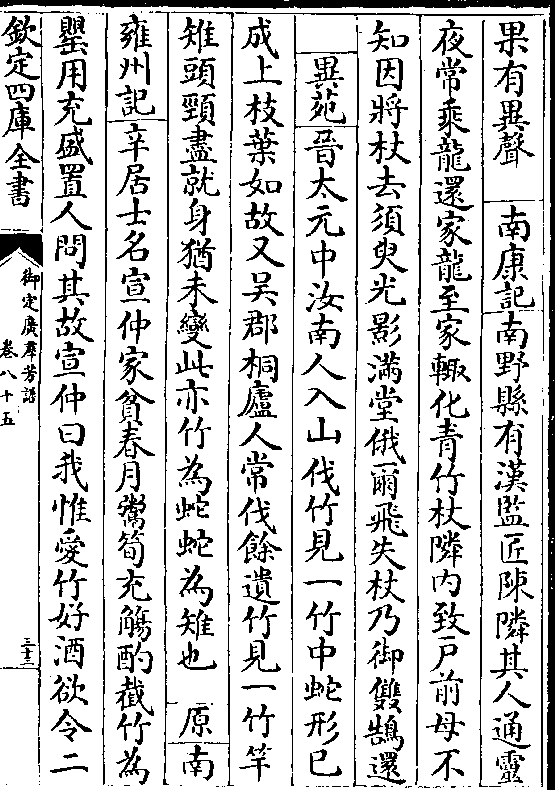 果有異聲　南康記南野縣有漢監匠陳隣其人通靈
夜常乘龍還家龍至家輙化青竹杖隣內致戸前母不
知因將杖去須臾光影滿堂俄爾飛失杖乃御雙鵠還
異苑晉太元中汝南人入山伐竹見一竹中蛇形已
成上枝葉如故又吴郡桐廬人常伐餘遺竹見一竹竿
雉頭頸盡就身猶未變此亦竹為蛇蛇為雉也　原南
雍州記辛居士名宣仲家貧春月鬻筍充觴酌截竹為
罌用充盛置人問其故宣仲曰我惟愛竹好酒欲令二
欽定四庫全書
御定廣羣芳譜
卷八十五
三十三